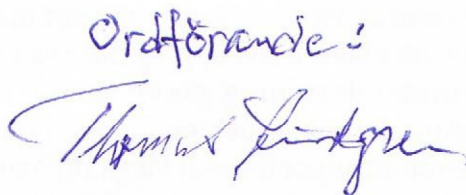 Ordförande:
Thomas Lindgren